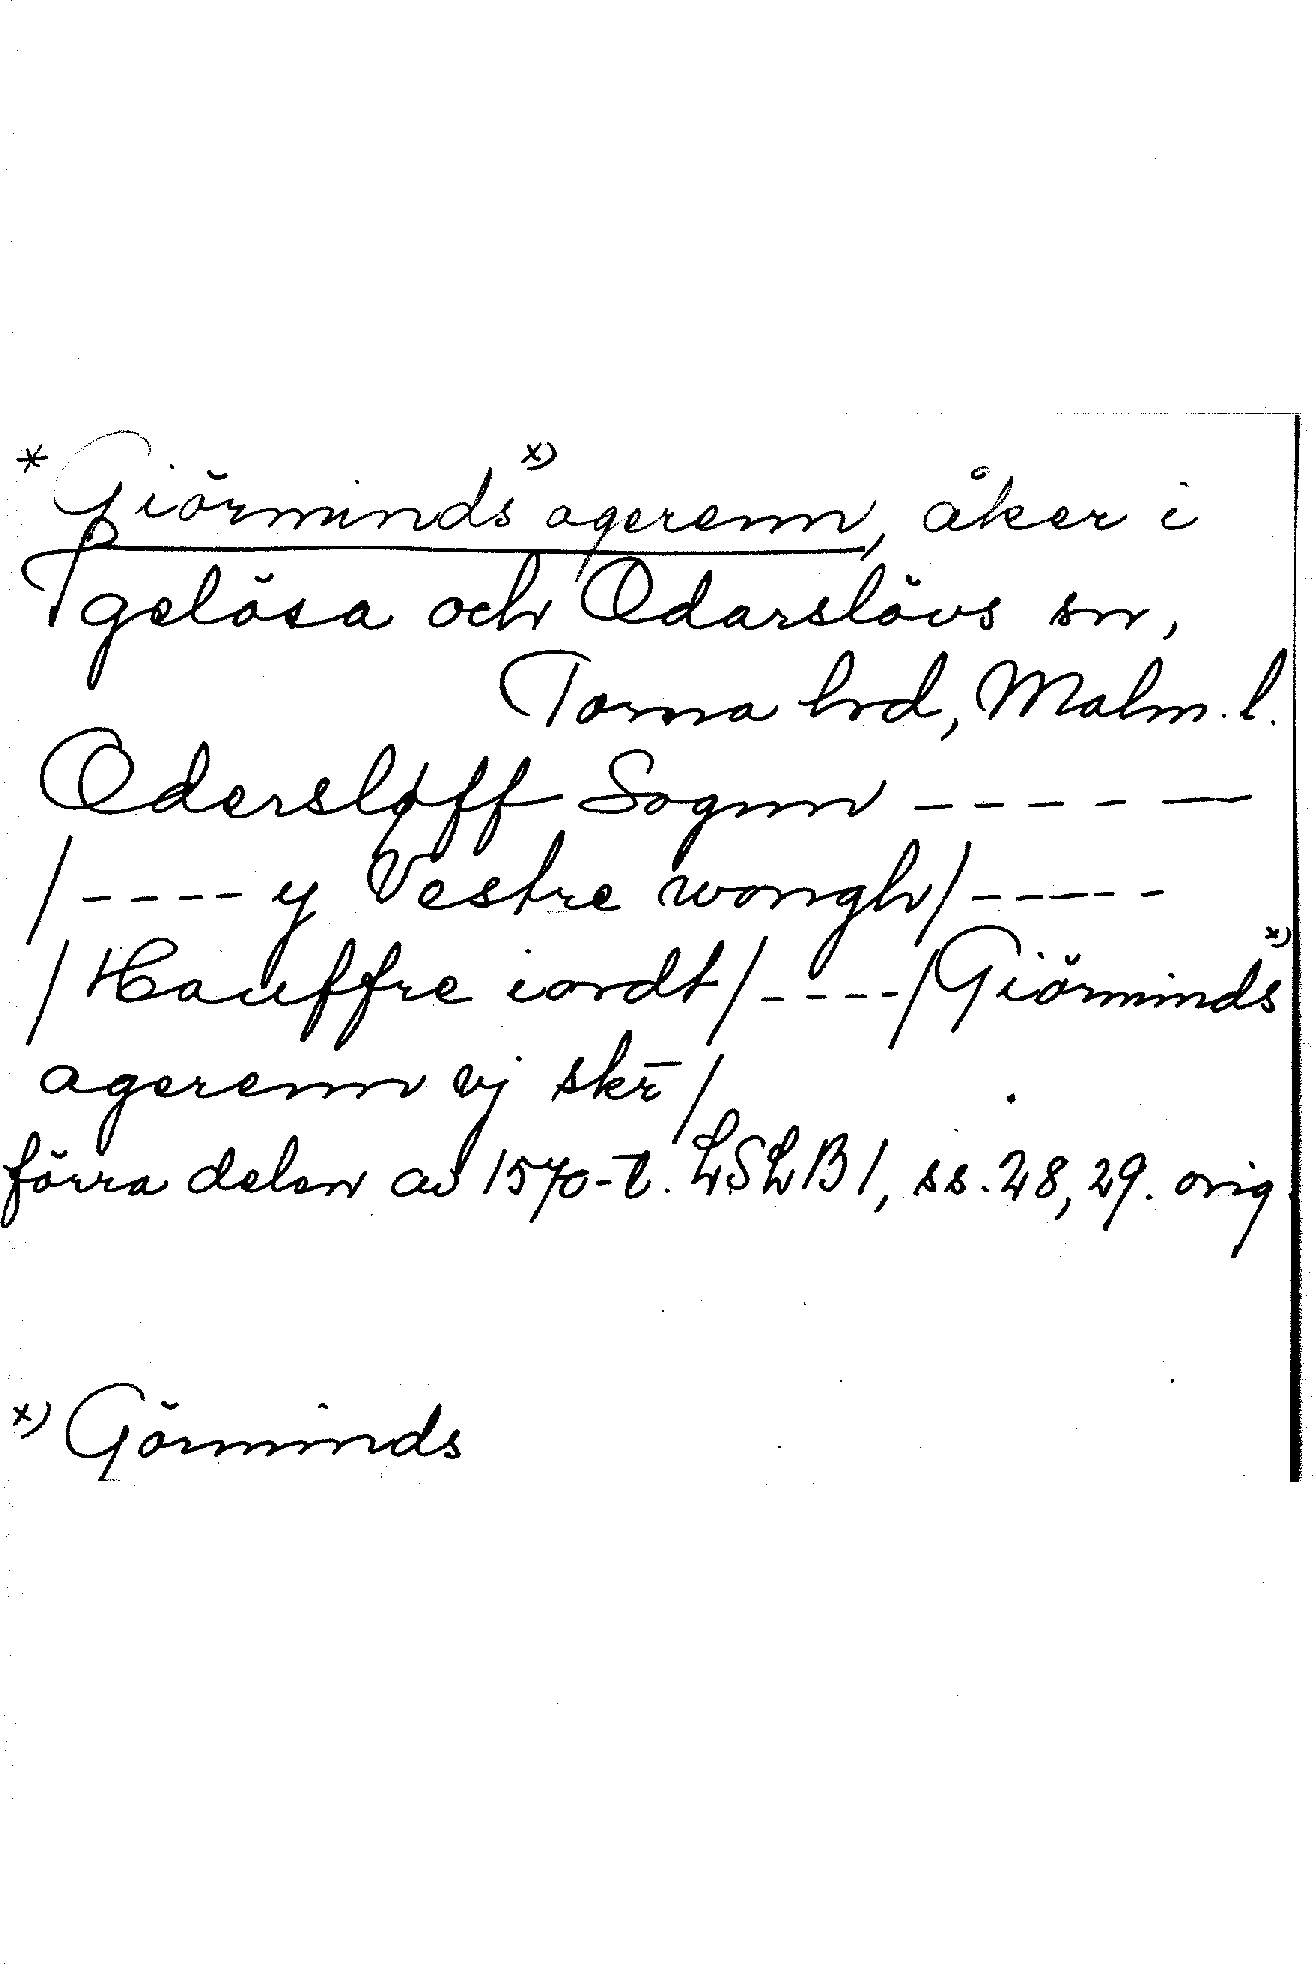 * Giörminds x) agerenn, åker i
Igelösa och Odarslövs sn,
Torna hd, Malm. l.
Odersløff Sognn - - - - - —
/ - - - - y Vestre wongh / - - - - -
/ Hauffre iordt / - - - - / Giörminds x)
agerenn vj skr̄ /
förra delen av 1570-t. LSLB 1, ss. 28, 29. orig.
x) Görminds